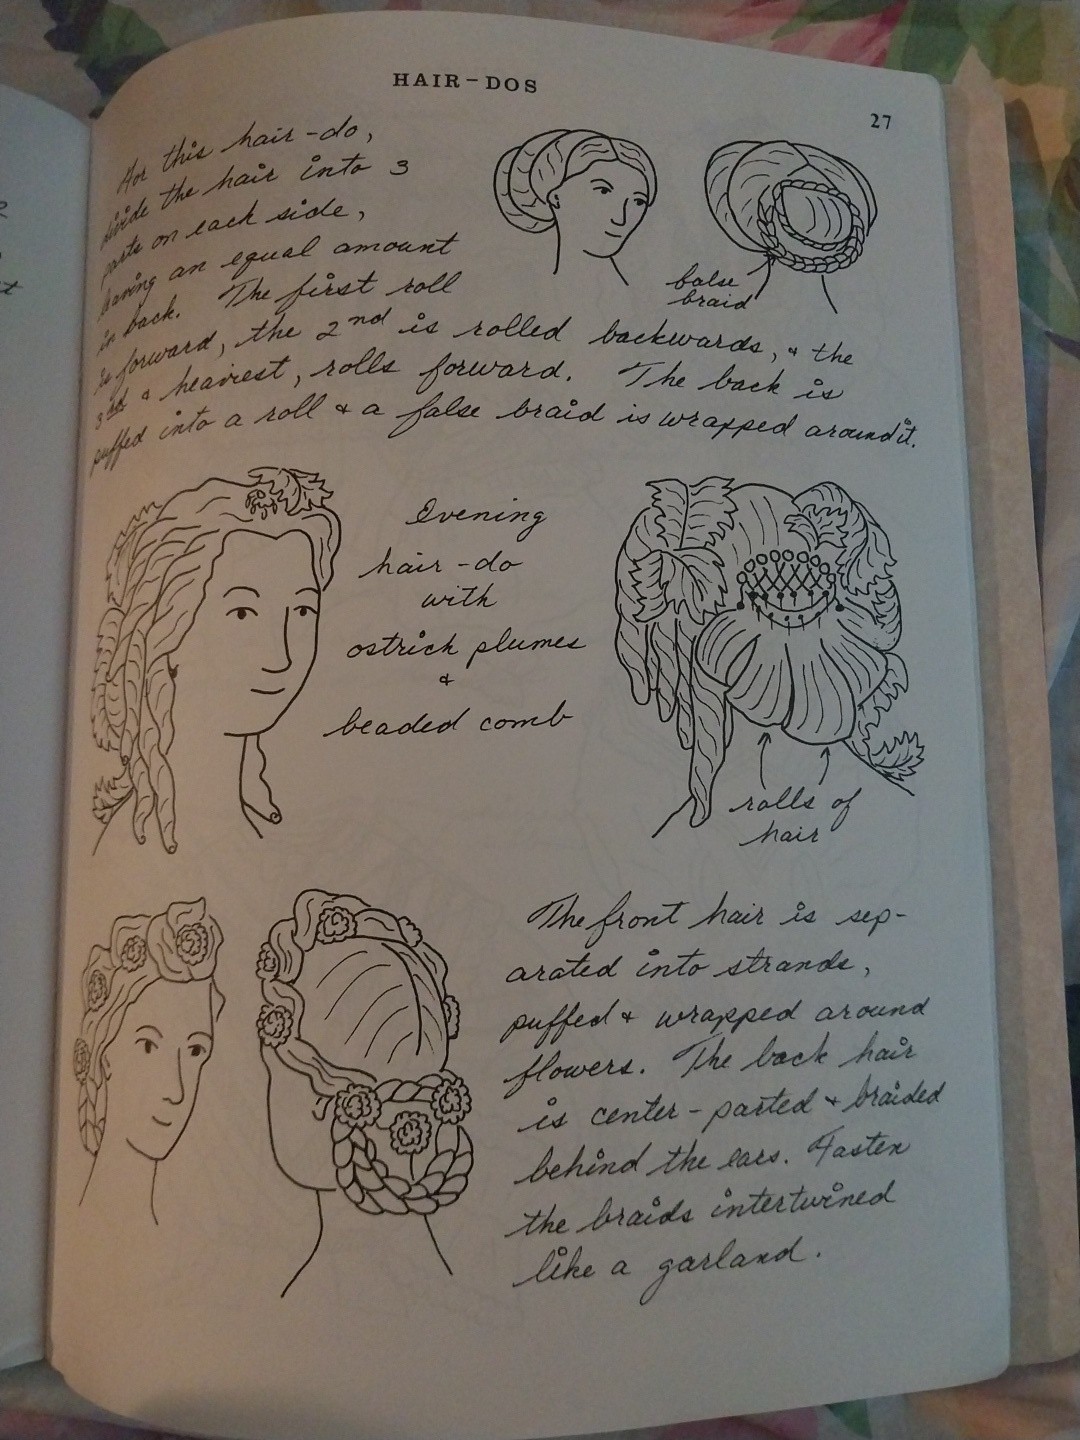 HAIR-DOS
27
For this hair-do,
divide the hair into 3
parts on each side,
having an equal amount
in back. The first roll
is forward, the 2nd is rolled backwards, & the
3rd & heaviest, rolls forward. The back is
puffed into a roll & a false braid is wrapped around it.
false
braid
Evening
hair-do
with
ostrich plumes
&
beaded comb
rolls of
hair
The front hair is sep-
arated into strands,
puffed & wrapped around
flowers. The back hair
is center-parted & braided
behind the ears. Fasten
the braids intertwined
like a garland.